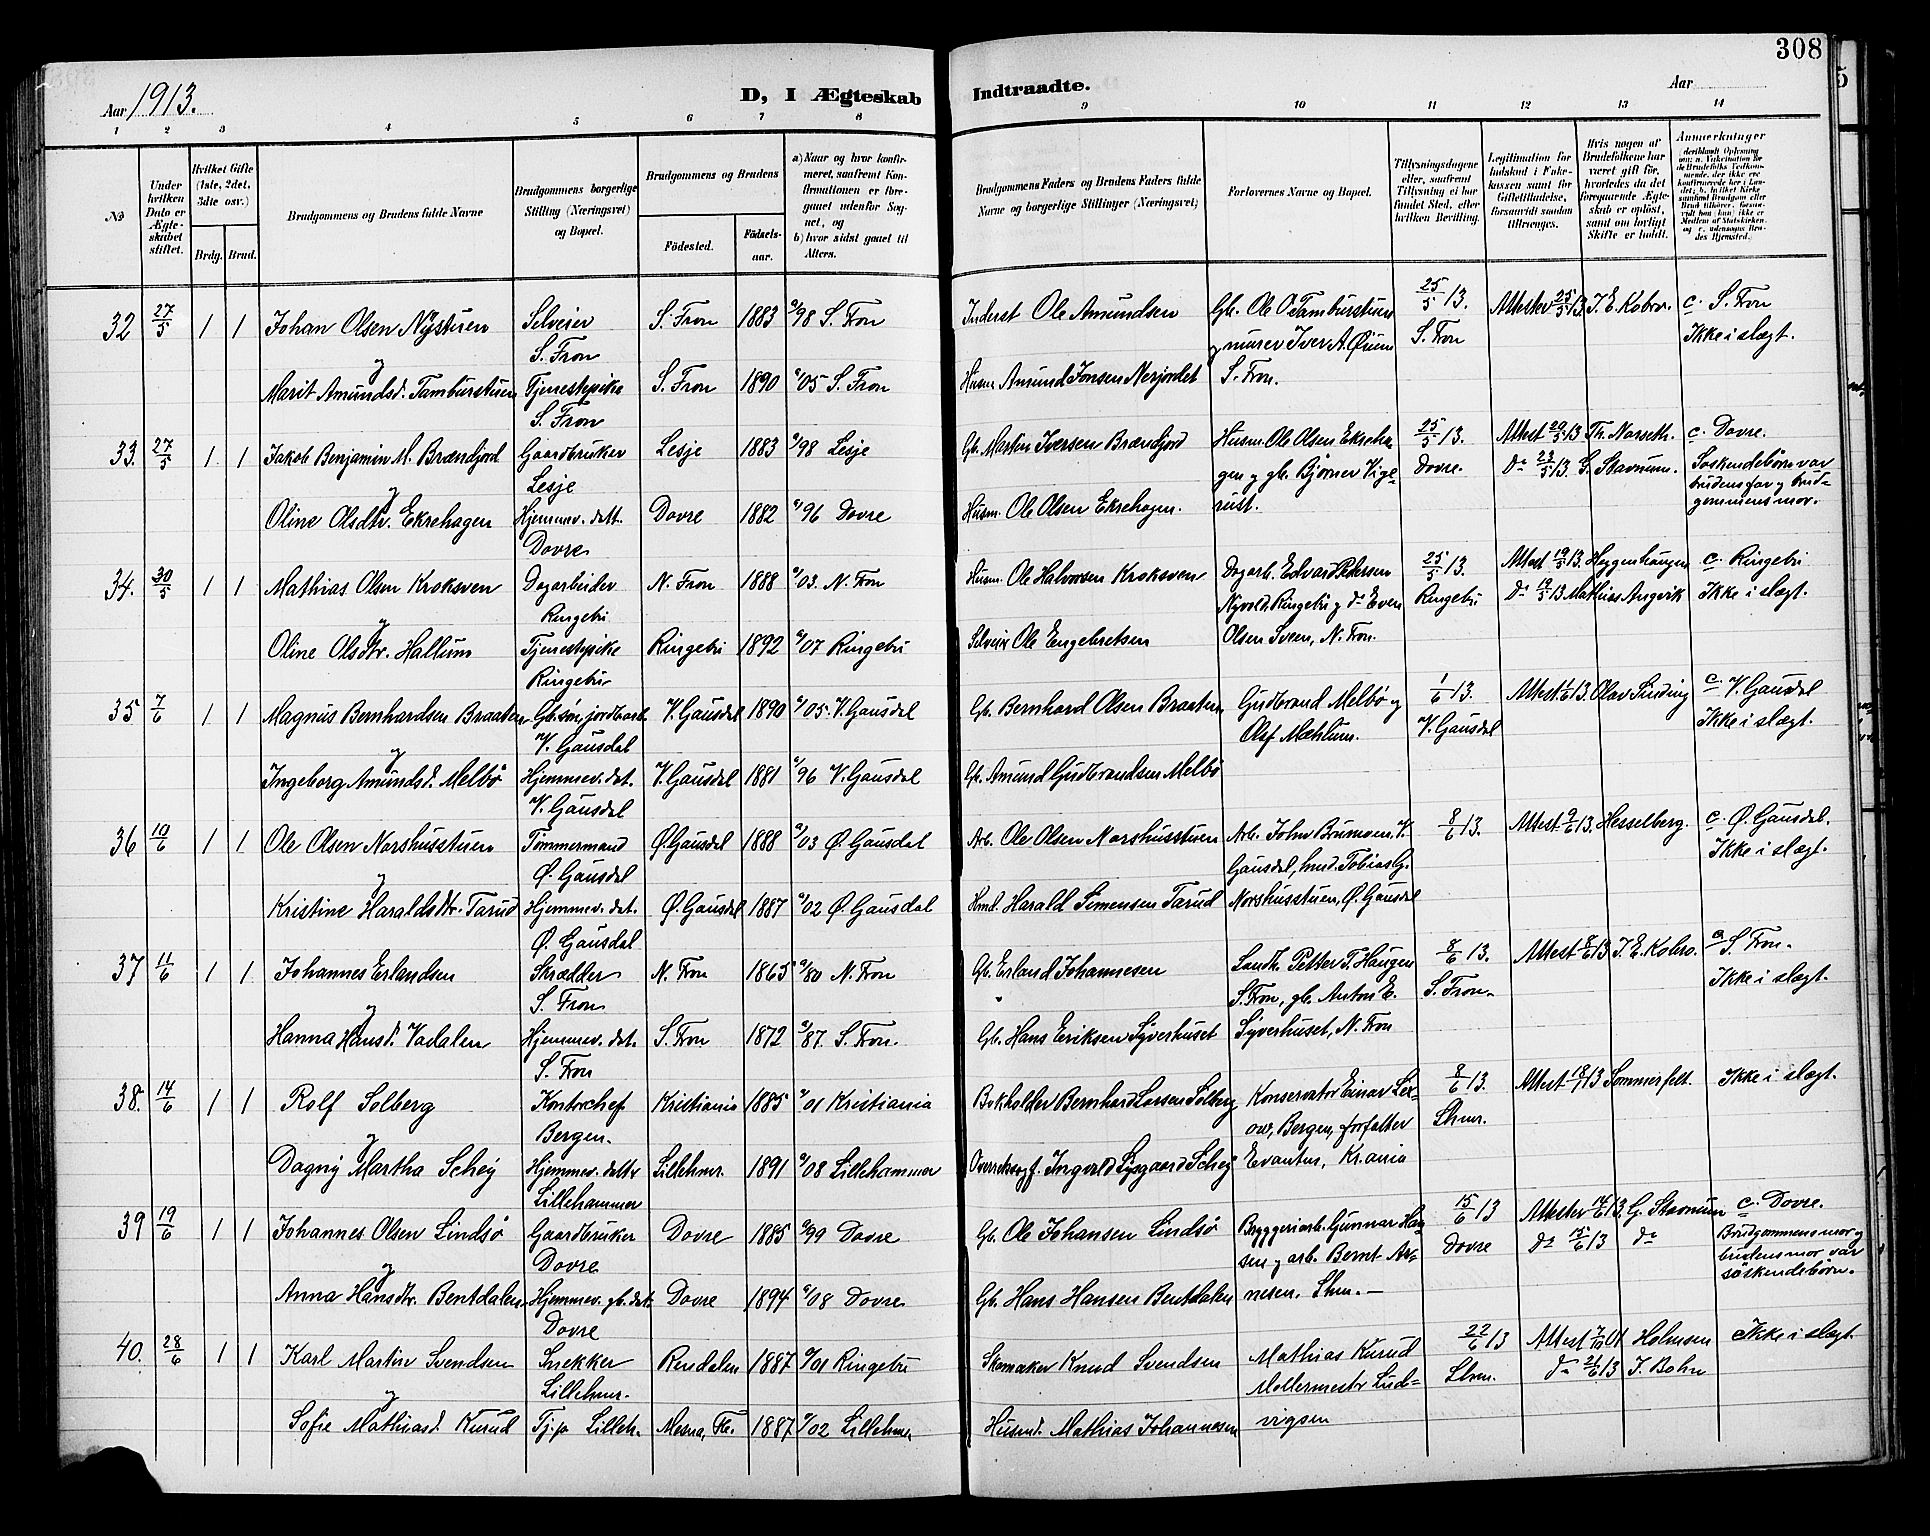 308
Aar 1913.
D, I Ægteskab Indtraadte.
Aar
1 2 3 4 5 6 7 8 9 10 11 12 13 14
No
Under hvilken Dato er Ægteskabet stiftet.
Hvilket Gifte (1ste, 2det, 3die osv.)
Brdg. Brud.
Brudgommens og Brudens fulde Navne
Brudgommens borgerlige Stilling (Næringsvei) og Bopæl.
Brudgommens og Brudens
Födested. Födselsaar.
a) Naar og hvor konfirmeret, saafremt Konfirmationen er foregaaet udenfor Sognet, og
b) hvor sidst gaaet til Alters.
Brudgommens Faders og Brudens Faders fulde Navne og borgerlige Stillinger (Næringsvei)
Forlovernes Navne og Bopæl.
Tillysningsdagene eller, saafremt Tillysning ei har fundet Sted, efter hvilken Bevilling.
Legitimation for Indskud i Enkekassen samt for Giftetilladelse, forsaavidt saadan tiltrænges.
Hvis nogen af Brudefolkene har været gift för, hvorledes da det foregaaende Ægteskab er oplöst, samt om lovligt Skifte er holdt.
Anmerkninger
32 27/5 1 1 Johan Olsen Nysturen Selveier S. Fron S. Fron 1883 98 S. Fron Inderst Ole Amundsen Gb. Ole O. Tamburstuen og murer Iver A. Øium S. Fron. 25/5 13. S. Fron Attester 25/5 13. J. E. Kobro. c. S. Fron Ikke i slægt.
og
Marit Amundsd. Tamburstuen Tjenestepike S. Fron S. Fron 1890 05 S. Fron Husm. Amund Jonsen Nerjordet
33. 27/5 1. 1 Jakob Benjamin M. Brændjord Gaardbruker Lesje Lesje 1883 98 Lesje Gb. Martin Iversen Brændjord Husm. Ole Olsen Ekrehagen og gb. Bjørner Vigerust. 25/5 13. Dovre. Attest 20/5 13 Th. Norseth. Do 23/5 13. G. Stavnum. c. Dovre. Søskendebörn var brudens far og brudgommens mor.
og
Oline Olsdtr. Ekrehagen Hjemmev. datt. Dovre Dovre 1882 96 Dovre Husm. Ole Olsen Ekrehagen.
34. 30/5 1 1 Mathias Olsen Kroksveen Dagarbeider Ringebu N. Fron 1888 03. N. Fron Husm. Ole Halvorsen Kroksveen Dagarb. Edvard Pedersen Nyvold, Ringebu og do Even Olsen Sveen, N. Fron. 25/5 13. Ringebu Attest 19/5 13. Heggenhaugen Do 19/5 13 Mathias Angvik c. Ringebu Ikke i slægt.
og
Oline Olsdtr. Hallum Tjenestepike Ringebu Ringebu 1892 07 Ringebu Selveier Ole Engebretsen
35 7/6 1 1 Magnus Bernhardsen Braaten Gb. søn, jordbarb. V. Gausdal V. Gausdal 1890 05 V. Gausdal Gb. Bernhard Olsen Braaten Gudbrand Melbö og Olaf Mæhlum. 1/6 13. V. Gausdal Attest 1/6 13. Olav Sinding c V. Gausdal Ikke i slægt.
og
Ingeborg Amundsd. Melbö Hjemmev. dat. V. Gausdal V. Gausdal 1881 96 V. Gausdal Gb. Amund Gudbrandsen Melbö
36 10/6 1 1 Ole Olsen Norshusstuen Tømmermand Ø. Gausdal Ø. Gausdal 1888 03 Ø. Gausdal Arb. Ole Olsen Norshusstuen Arb. John Brumoen, V. Gausdal, hmd. Tobias G. Norshusstuen, Ø. Gausdal 8/6 13. Attest 9/6 13. Hesselberg. c. Ø. Gausdal. Ikke i slægt.
og
Kristine Haraldsdtr. Tarud Hjemmev. dat. Ø. Gausdal Ø. Gausdal 1887 02 Ø. Gausdal Hmd. Harald Simensen Tarud
37 11/6 1 1 Johannes Erlandsen Skrædder S. Fron N. Fron 1865 80 N. Fron Gb. Erland Johannesen Landh. Petter T. Haugen S. Fron, gb. Anton E. Syverhuset, N. Fron 8/6 13. S. Fron. Attest 8/6 13 J. E. Kobro. a S. Fron. Ikke i slægt.
og
Hanna Hansd. Vadalen Hjemmev. dat. S. Fron S. Fron 1872 87. S. Fron. Gb. Hans Eriksen Syverhuset
38. 14/6 1 1 Rolf Solberg Kontorchef Bergen. Kristiania 1885 01 Kristiania Bokholder Bernhard Larsen Solberg Konservator Einar Lexow, Bergen, forfatter Evantus, Kr.ania 8/6 13. Lhmr. Attest 18/7 13 Sommerfelt. Ikke i slægt.
og
Dagny Martha Schey Hjemmev. datter Lillehammer Lillehmr. 1891 08 Lillehammer Ingvald Lysgaard Schey
39 19/6 1 1 Johannes Olsen Lindsø Gaardbruker Dovre Dovre 1885 99 Dovre Gb. Ole Johansen Lindsø Bryggeriarb. Gunnar Hansen og arb. Bernt Arnesen. Lhm. — 15/6 13 Dovre Attester 14/6 13. G. Stavnum Do 15/6 13 do c. Dovre. Brudgommens mor og brudens mor var söskendebörn.
og
Anna Hansdtr. Bentdalen Hjemmev. gb. dat. Dovre Dovre 1894 08 Dovre Gb. Hans Hansen Bentdalen
40. 28/6 1 1 Karl Martin Svendsen Snekker Lillehmr. Rendalen 1887 01 Ringebu Skomaker Knud Svendsen Mathias Kurud Møllermester Ludvigsen 22/6 13 Lhm. Attest 7/10 01 Holmsen Do 21/6 13 J. Bohn c Ikke i slægt
og
Sofie Mathiasd. Kurud Tj.p. Lilleh. Mesna, Fb. 1887 02 Lillehmr Husmd. Mathias Johannesen